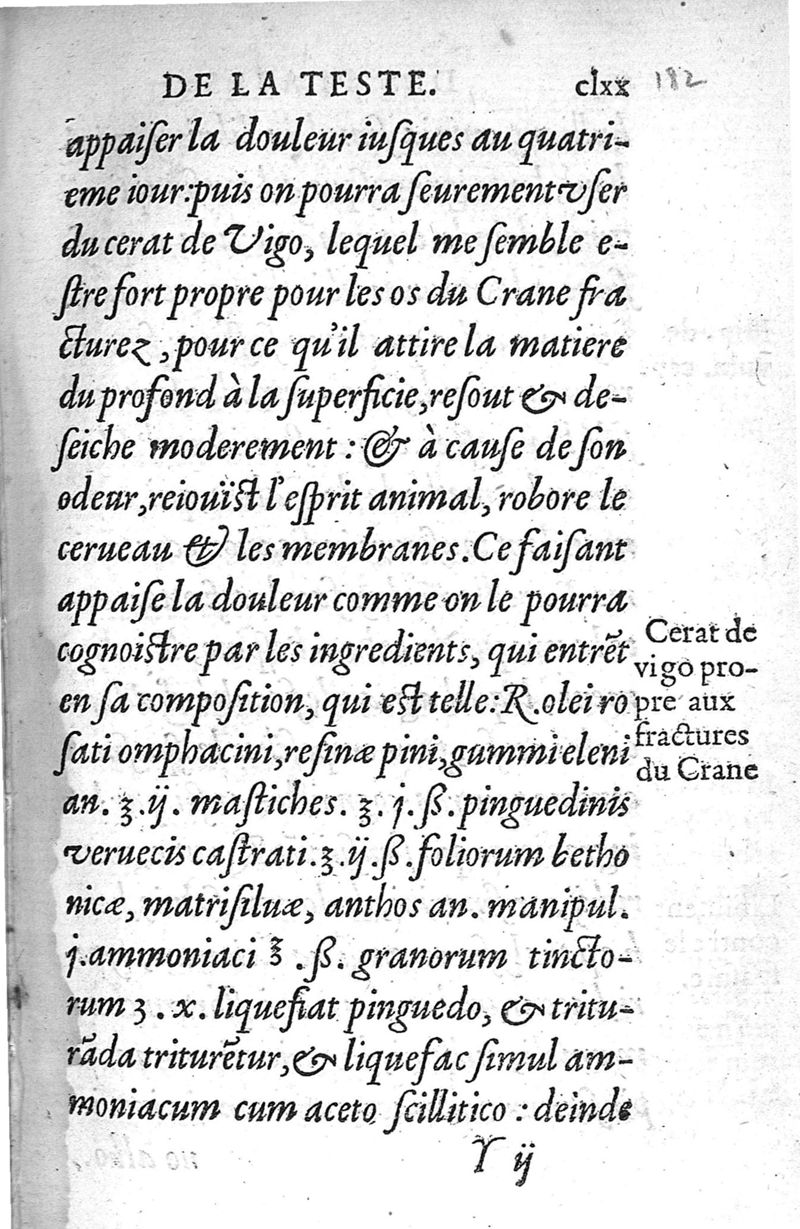 DE LA TESTE. clxx 182
appaiſer la douleur iuſques au quatri-
eme iour:puis on pourra ſeurement vſer
du cerat de Vigo, lequel me ſemble e-
ſtre fort propre pour les os du Crane fra
cturez, pour ce qu'il attire la matiere
du profond à la ſuperficie, reſout & de-
ſeiche moderement : & à cauſe de ſon
odeur, reiouïst l'eſprit animal, robore le
cerueau & les membranes. Ce faiſant
appaiſe la douleur comme on le pourra
cognoistre par les ingredients, qui entrẽt
en ſa compoſition, qui est telle: R. olei ro
ſati omphacini, reſinæ pini, gummi eleni
an. ʒ. ij. maſtiches. ʒ. j. ß. pinguedinis
veruecis caſtrati. ʒ. ij. ß. foliorum betho
nicæ, matriſiluæ, anthos an. manipul.
j. ammoniaci ℥. ß. granorum tincto-
rum ʒ. x. liquefiat pinguedo, & tritu-
rãda triturẽtur, & liquefac ſimul am-
moniacum cum aceto ſcillitico : deinde
Y ij
Cerat de
vigo pro-
pre aux
fractures
du Crane